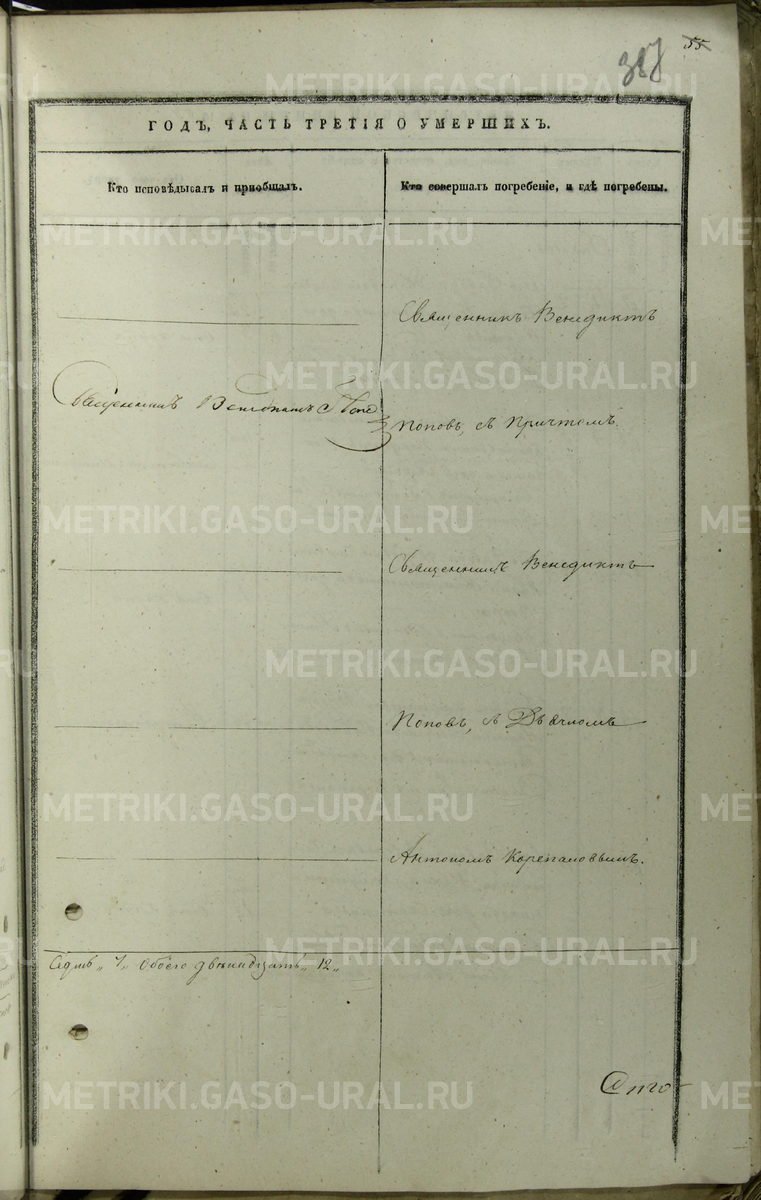 55
387
ГОДЪ, ЧАСТЬ ТРЕТІЯ О УМЕРШИХЪ.
Кто исповѣдывалъ и пріобщалъ.
Кто совершалъ погребеніе, и гдѣ погребены.
Священникъ Венедиктъ
Священникъ Венедиктъ Попо
Поповъ, съ Причтомъ.
Священникъ Венедиктъ
Поповъ, съ Дьячкомъ
Антономъ Корепановымъ.
Седмь „ 7 „ Обоего двенадцать „ 12 „
METRIKI.GASO-URAL.RU